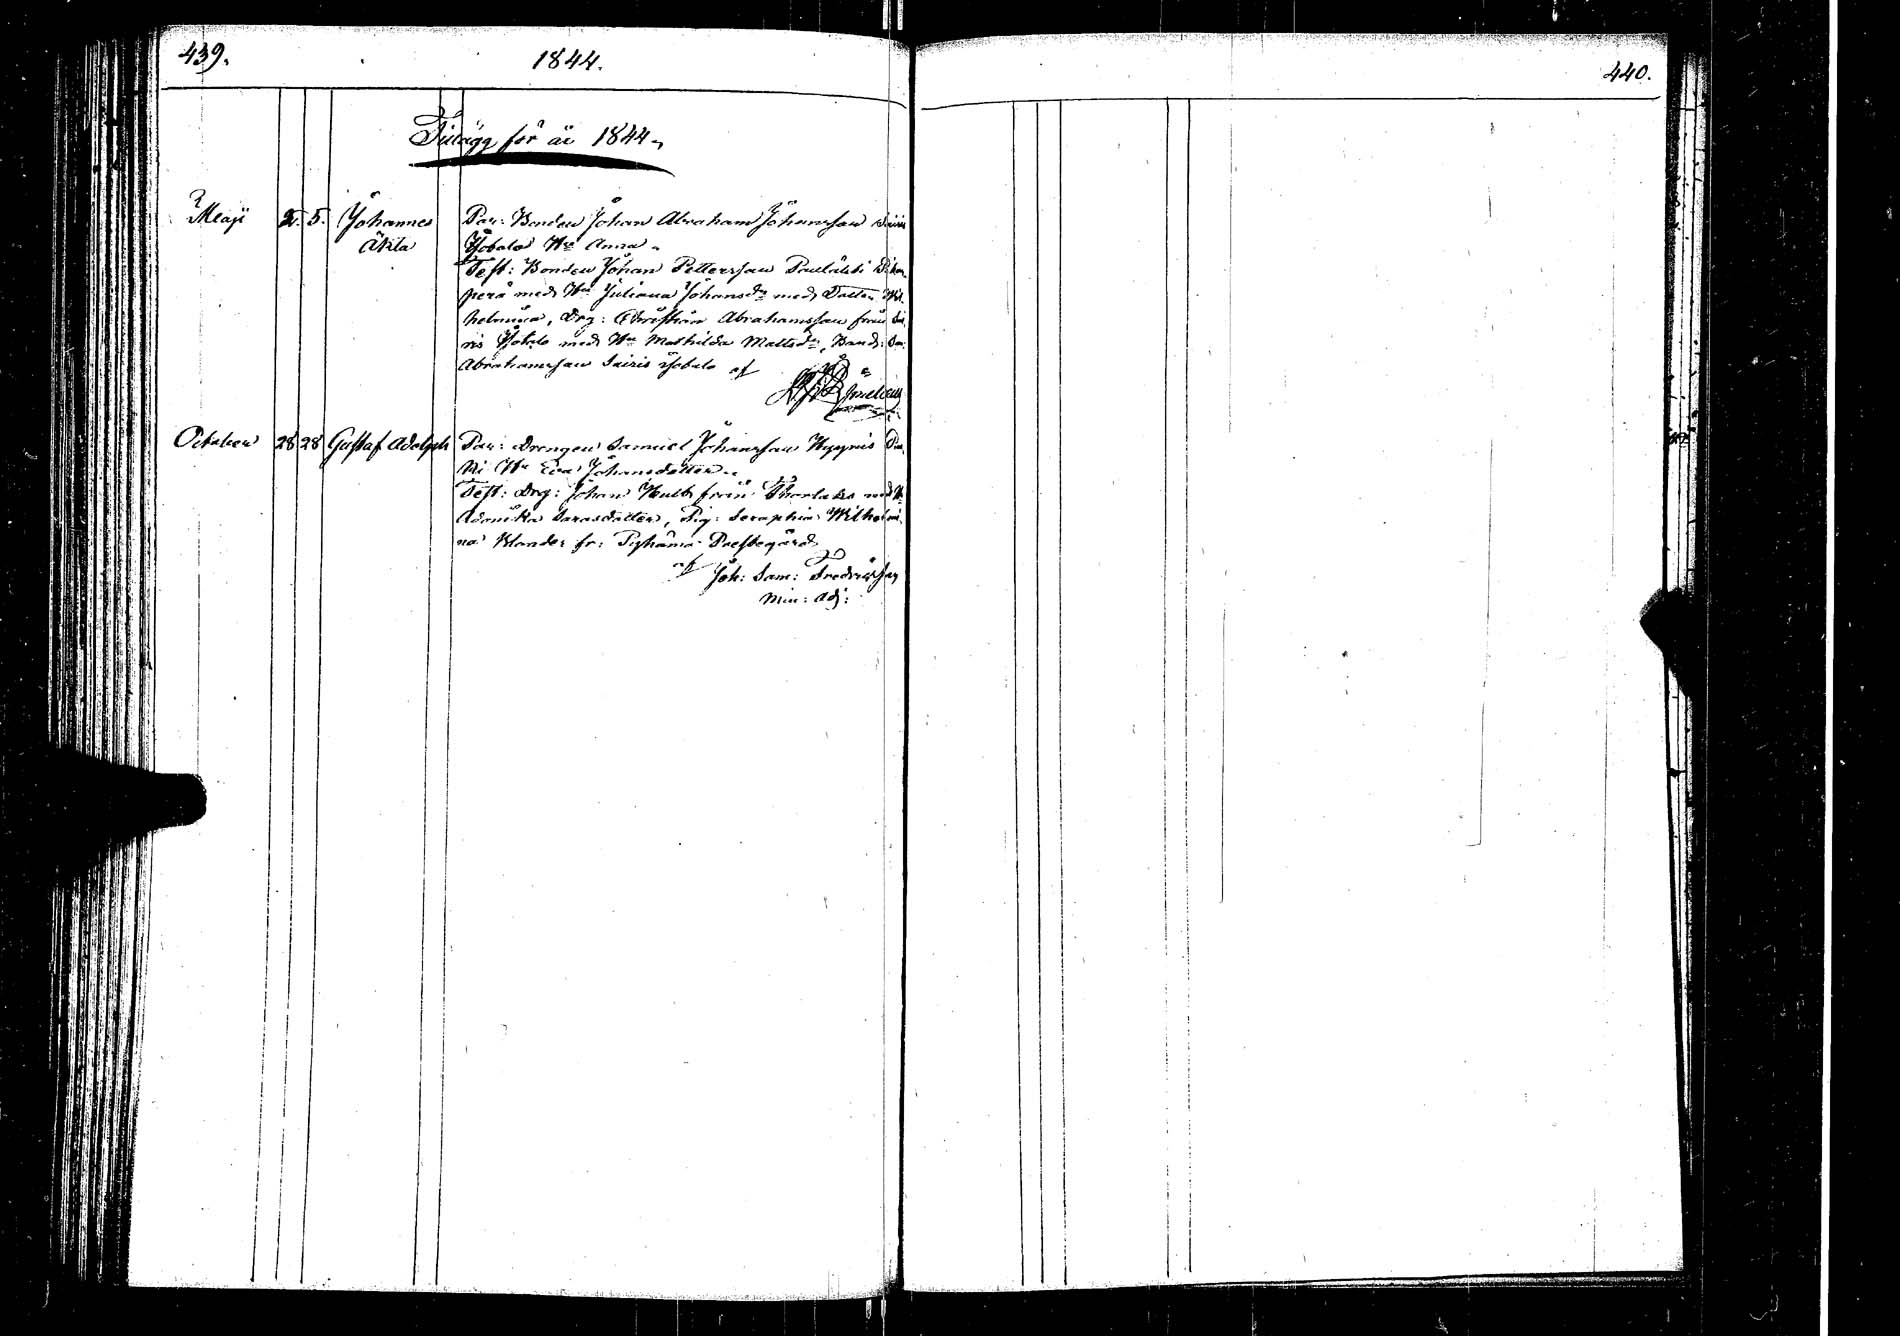 439.
1844.
440.
Tillägg för år 1844.
Maji 2. 5. Johannes Par: Bonden Johan Abraham Johansson Sairis
äkta Yobala Hu Anna.
Test: Bonden Johan Pettersson
perä med Hu Juliana Johansdr med Dotter Wil
helmina, Drg: Christian Abrahamsson från Sai
ris Yobala med Hu Mathilda Mattsdr, Bond:
Abrahamsson Sairis Yobala af
October 28 28 Gustaf Adolph Par: Drengen Samuel Johansson Hyypiö
Hu Eva Johansdotter.
Test: Drg: Johan från med Hu
Sarasdotter, Pig: Seraphia Wilhelmi
na fr: Pyhämä Prestegård
af Joh: Sam: Fredricsson
Min: Adj: